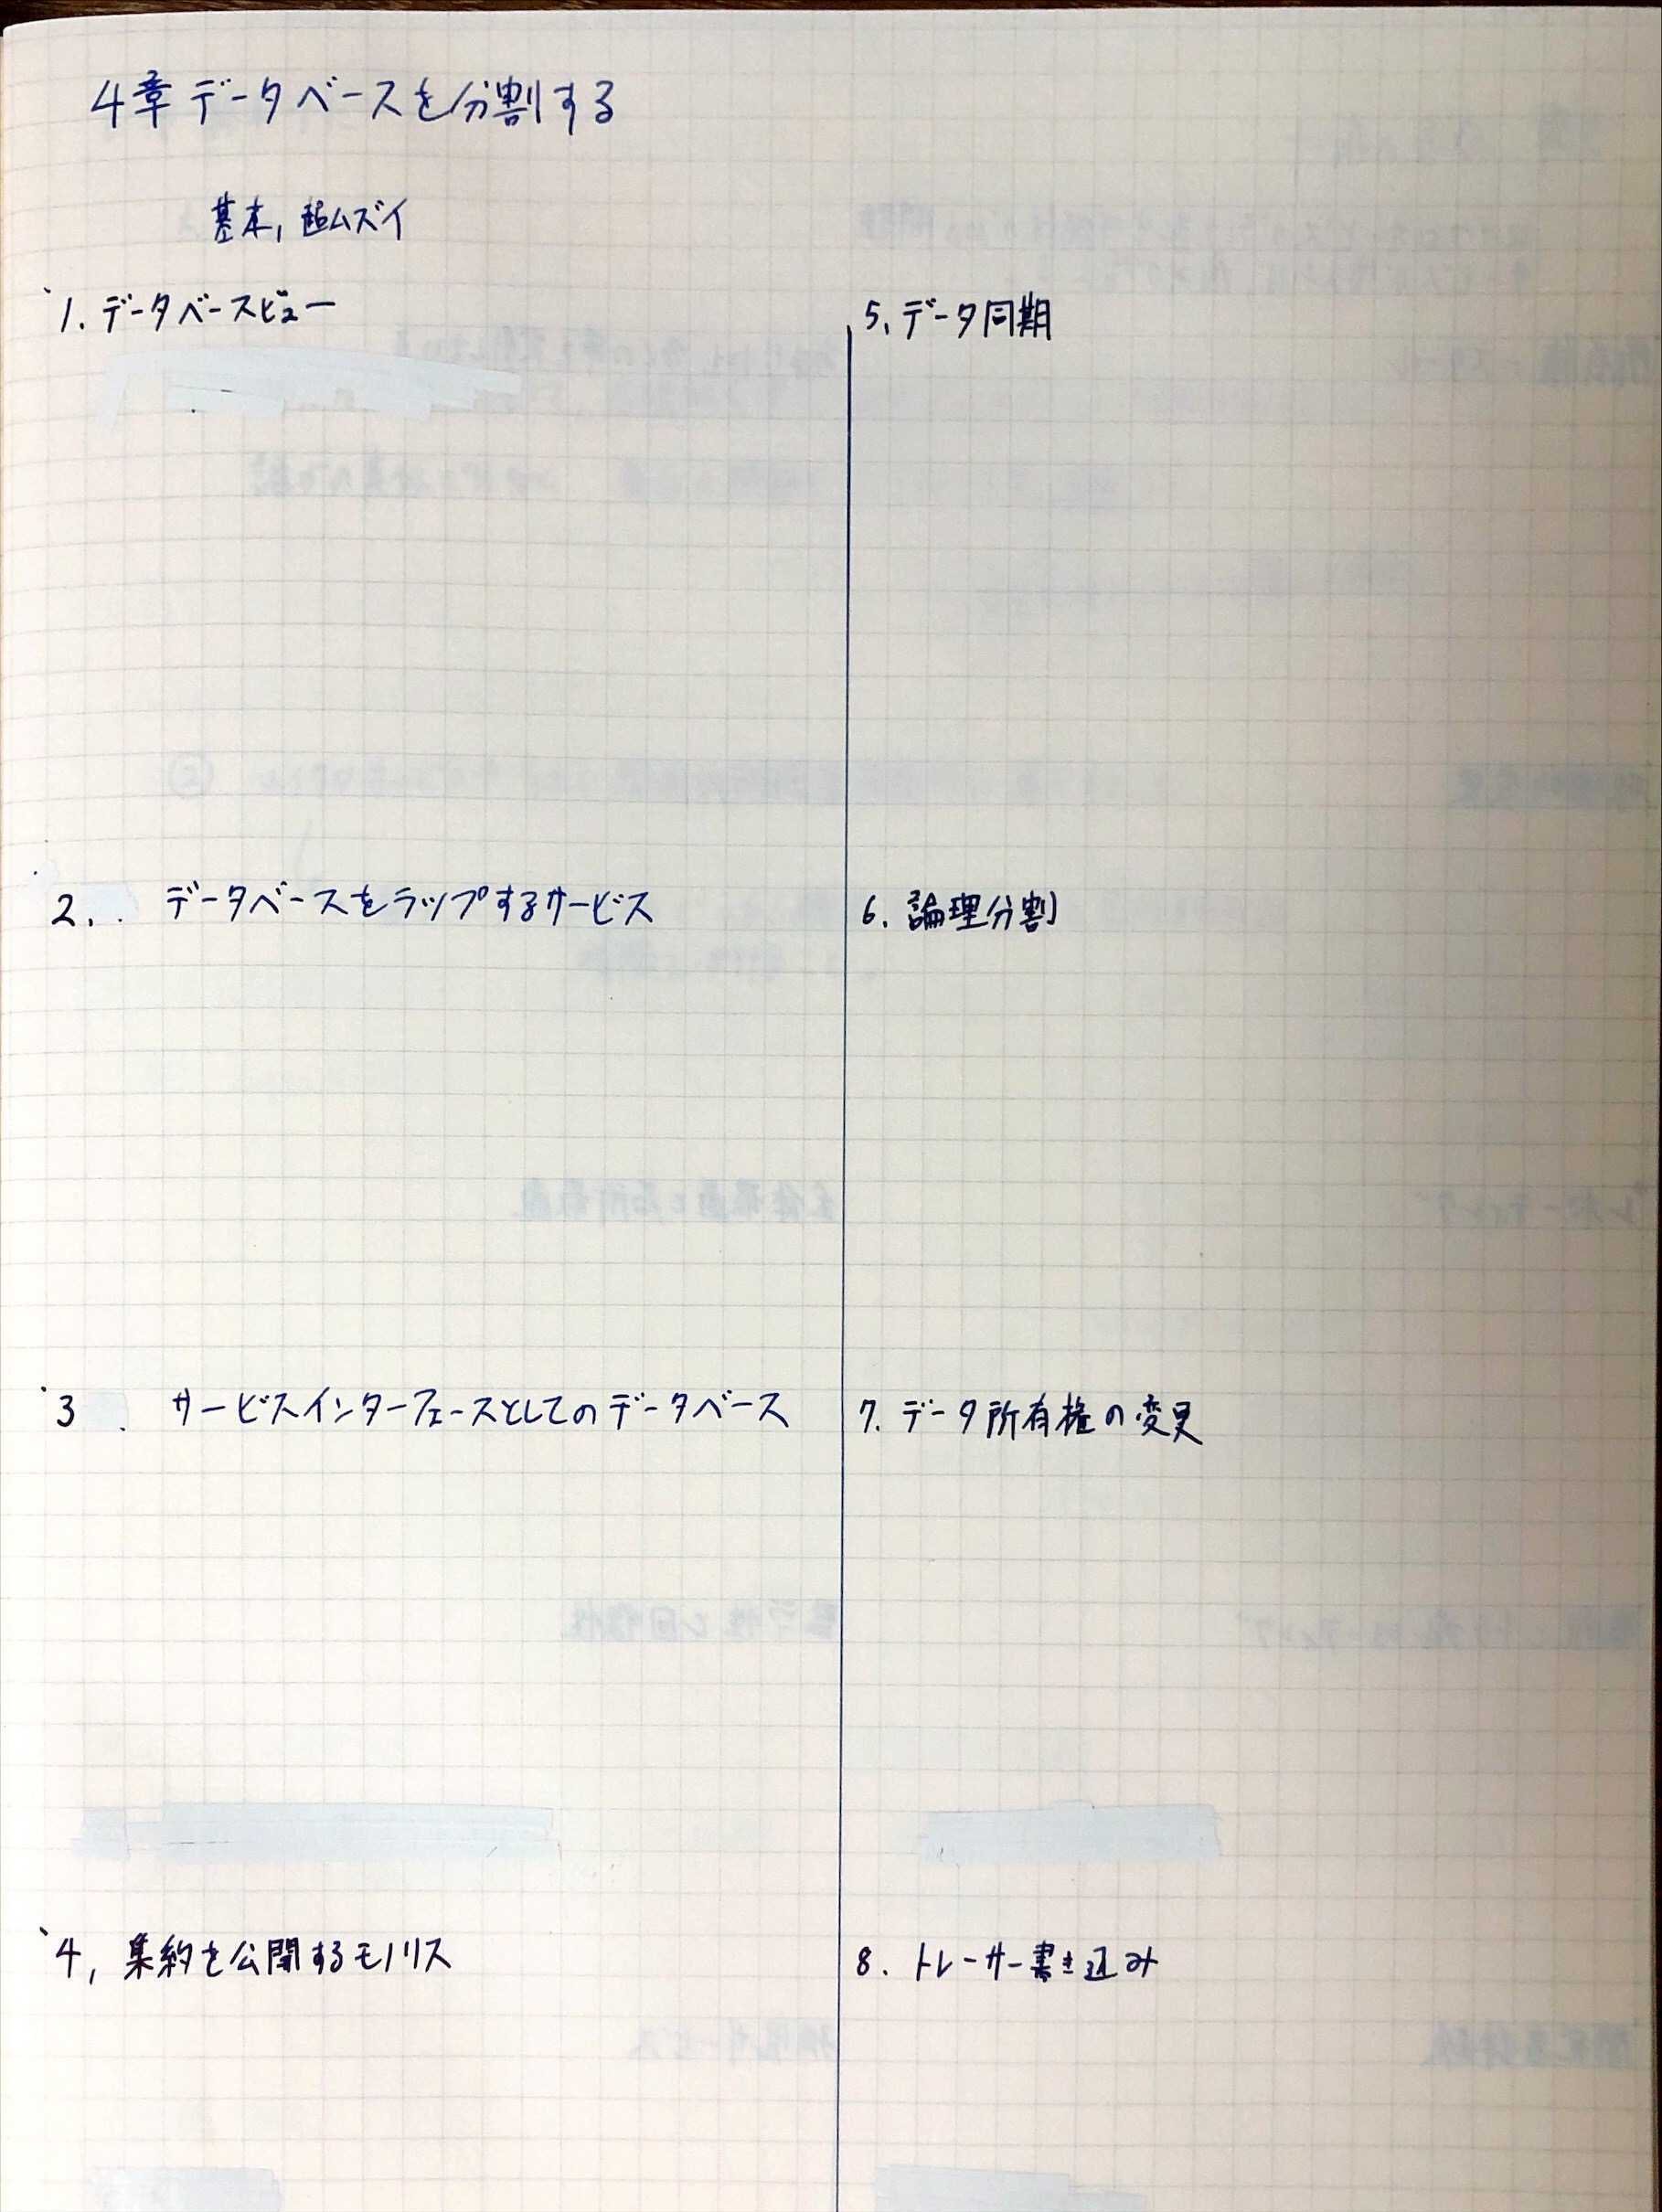 4章 データベースを分割する
基本, 超ムズイ
1. データベースビュー
2. データベースをラップするサービス
3. サービスインターフェースとしてのデータベース
4, 集約を公開するモノリス
5. データ同期
6. 論理分割
7. データ所有権の変更
8. トレーサー書き込み